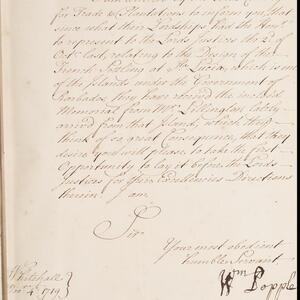 for Trade & Plantations to acquaint you, that
since what their Lordships had the Honr.
to represent to the Lords Justices the 2d. of
Octr. last, relating to the Design of the
French Settling at St. Lucia, which is one
of the Islands under the Government of
Barbados, they have received the inclosed
Memorial from Mr. lately
arrived from that Island, which they
think of so great Consequence, that they
desire you will please to take the first
Opportunity to lay it before the Lords
Justices for their Excellencies Directions
therein. I am,
Sir,
Your most obedient
humble Servant
Wm Popple
Whitehall
4th. 1719.